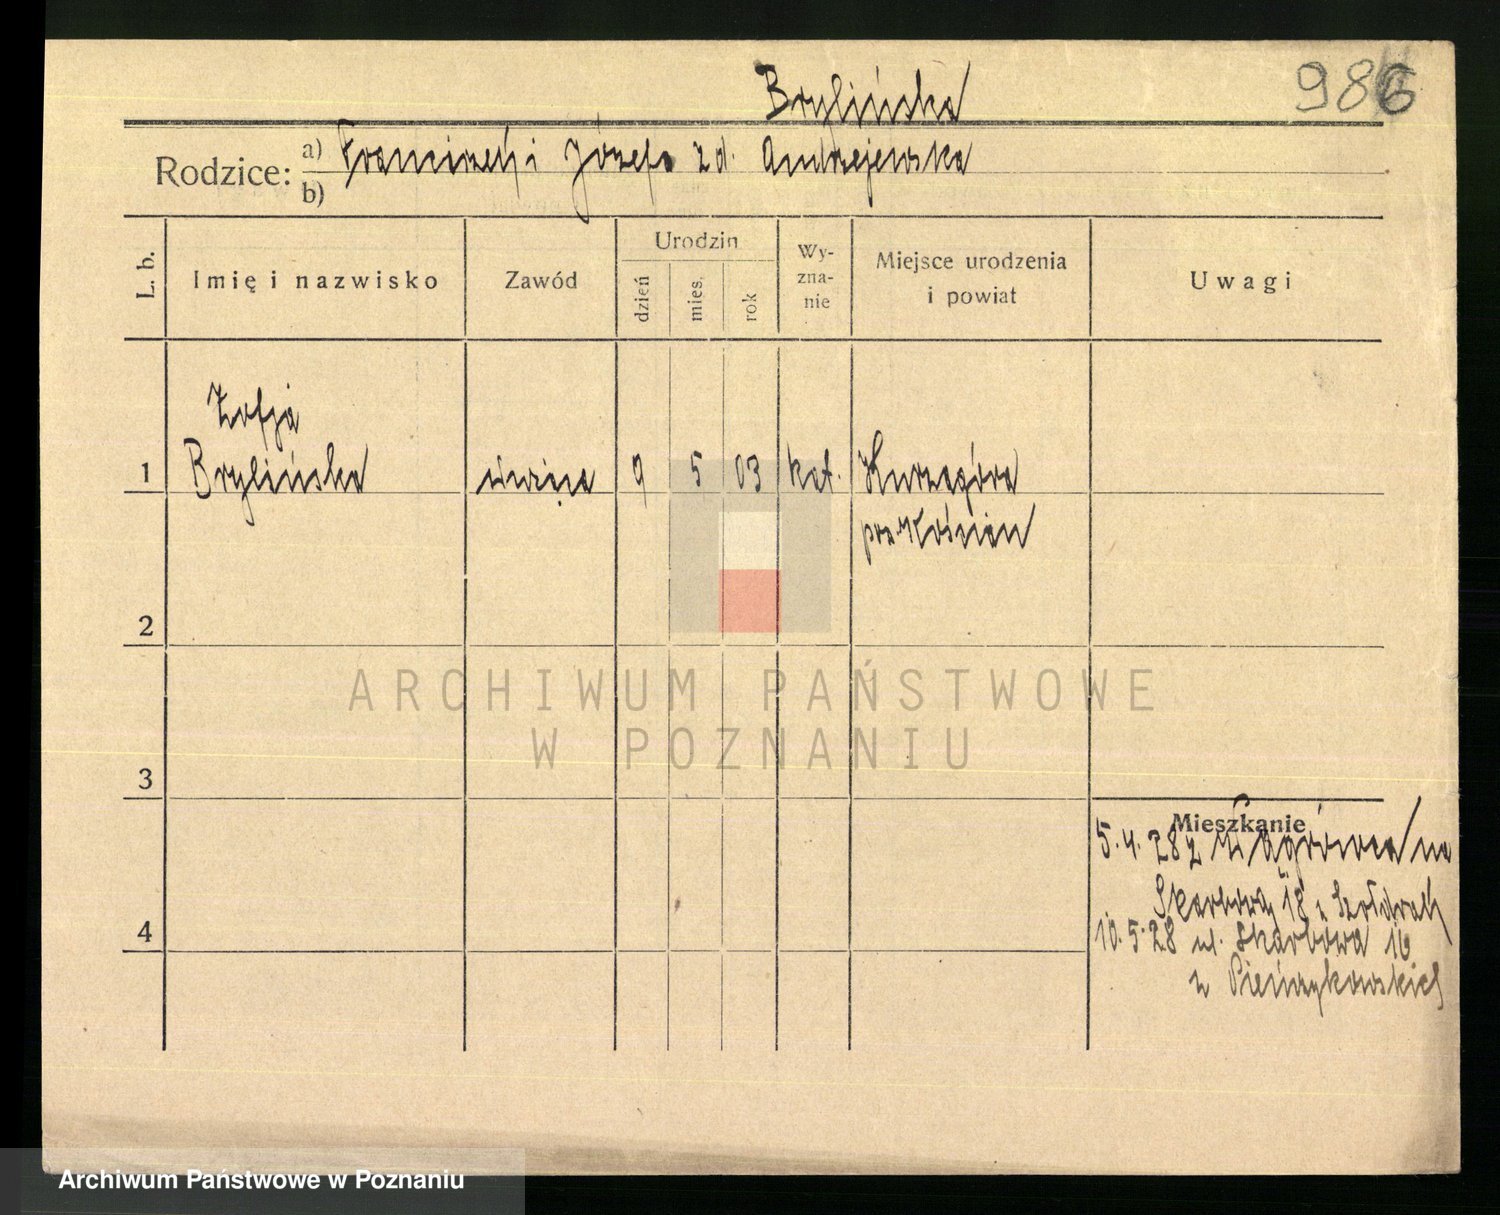 Brylińska
986
Rodzice:
a) Franciszek i Józefa z d. Andrzejewska
b)
L. b.
Imię i nazwisko
Zawód
Urodzin
dzień
mies.
rok
Wy-
zna-
nie
Miejsce urodzenia
i powiat
Uwagi
Zofja
1 Brylińska 9 5 03 kat. Kurzagóra
pow. Kościan
2
ARCHIWUM PAŃSTWOWE
W POZNANIU
3
Mieszkanie
5. 4. 28 z Wągrówca na
Skarbową 18
4
10. 5. 28 ul. Skarbowa 16
u Pieńczykowskich
Archiwum Państwowe w Poznaniu